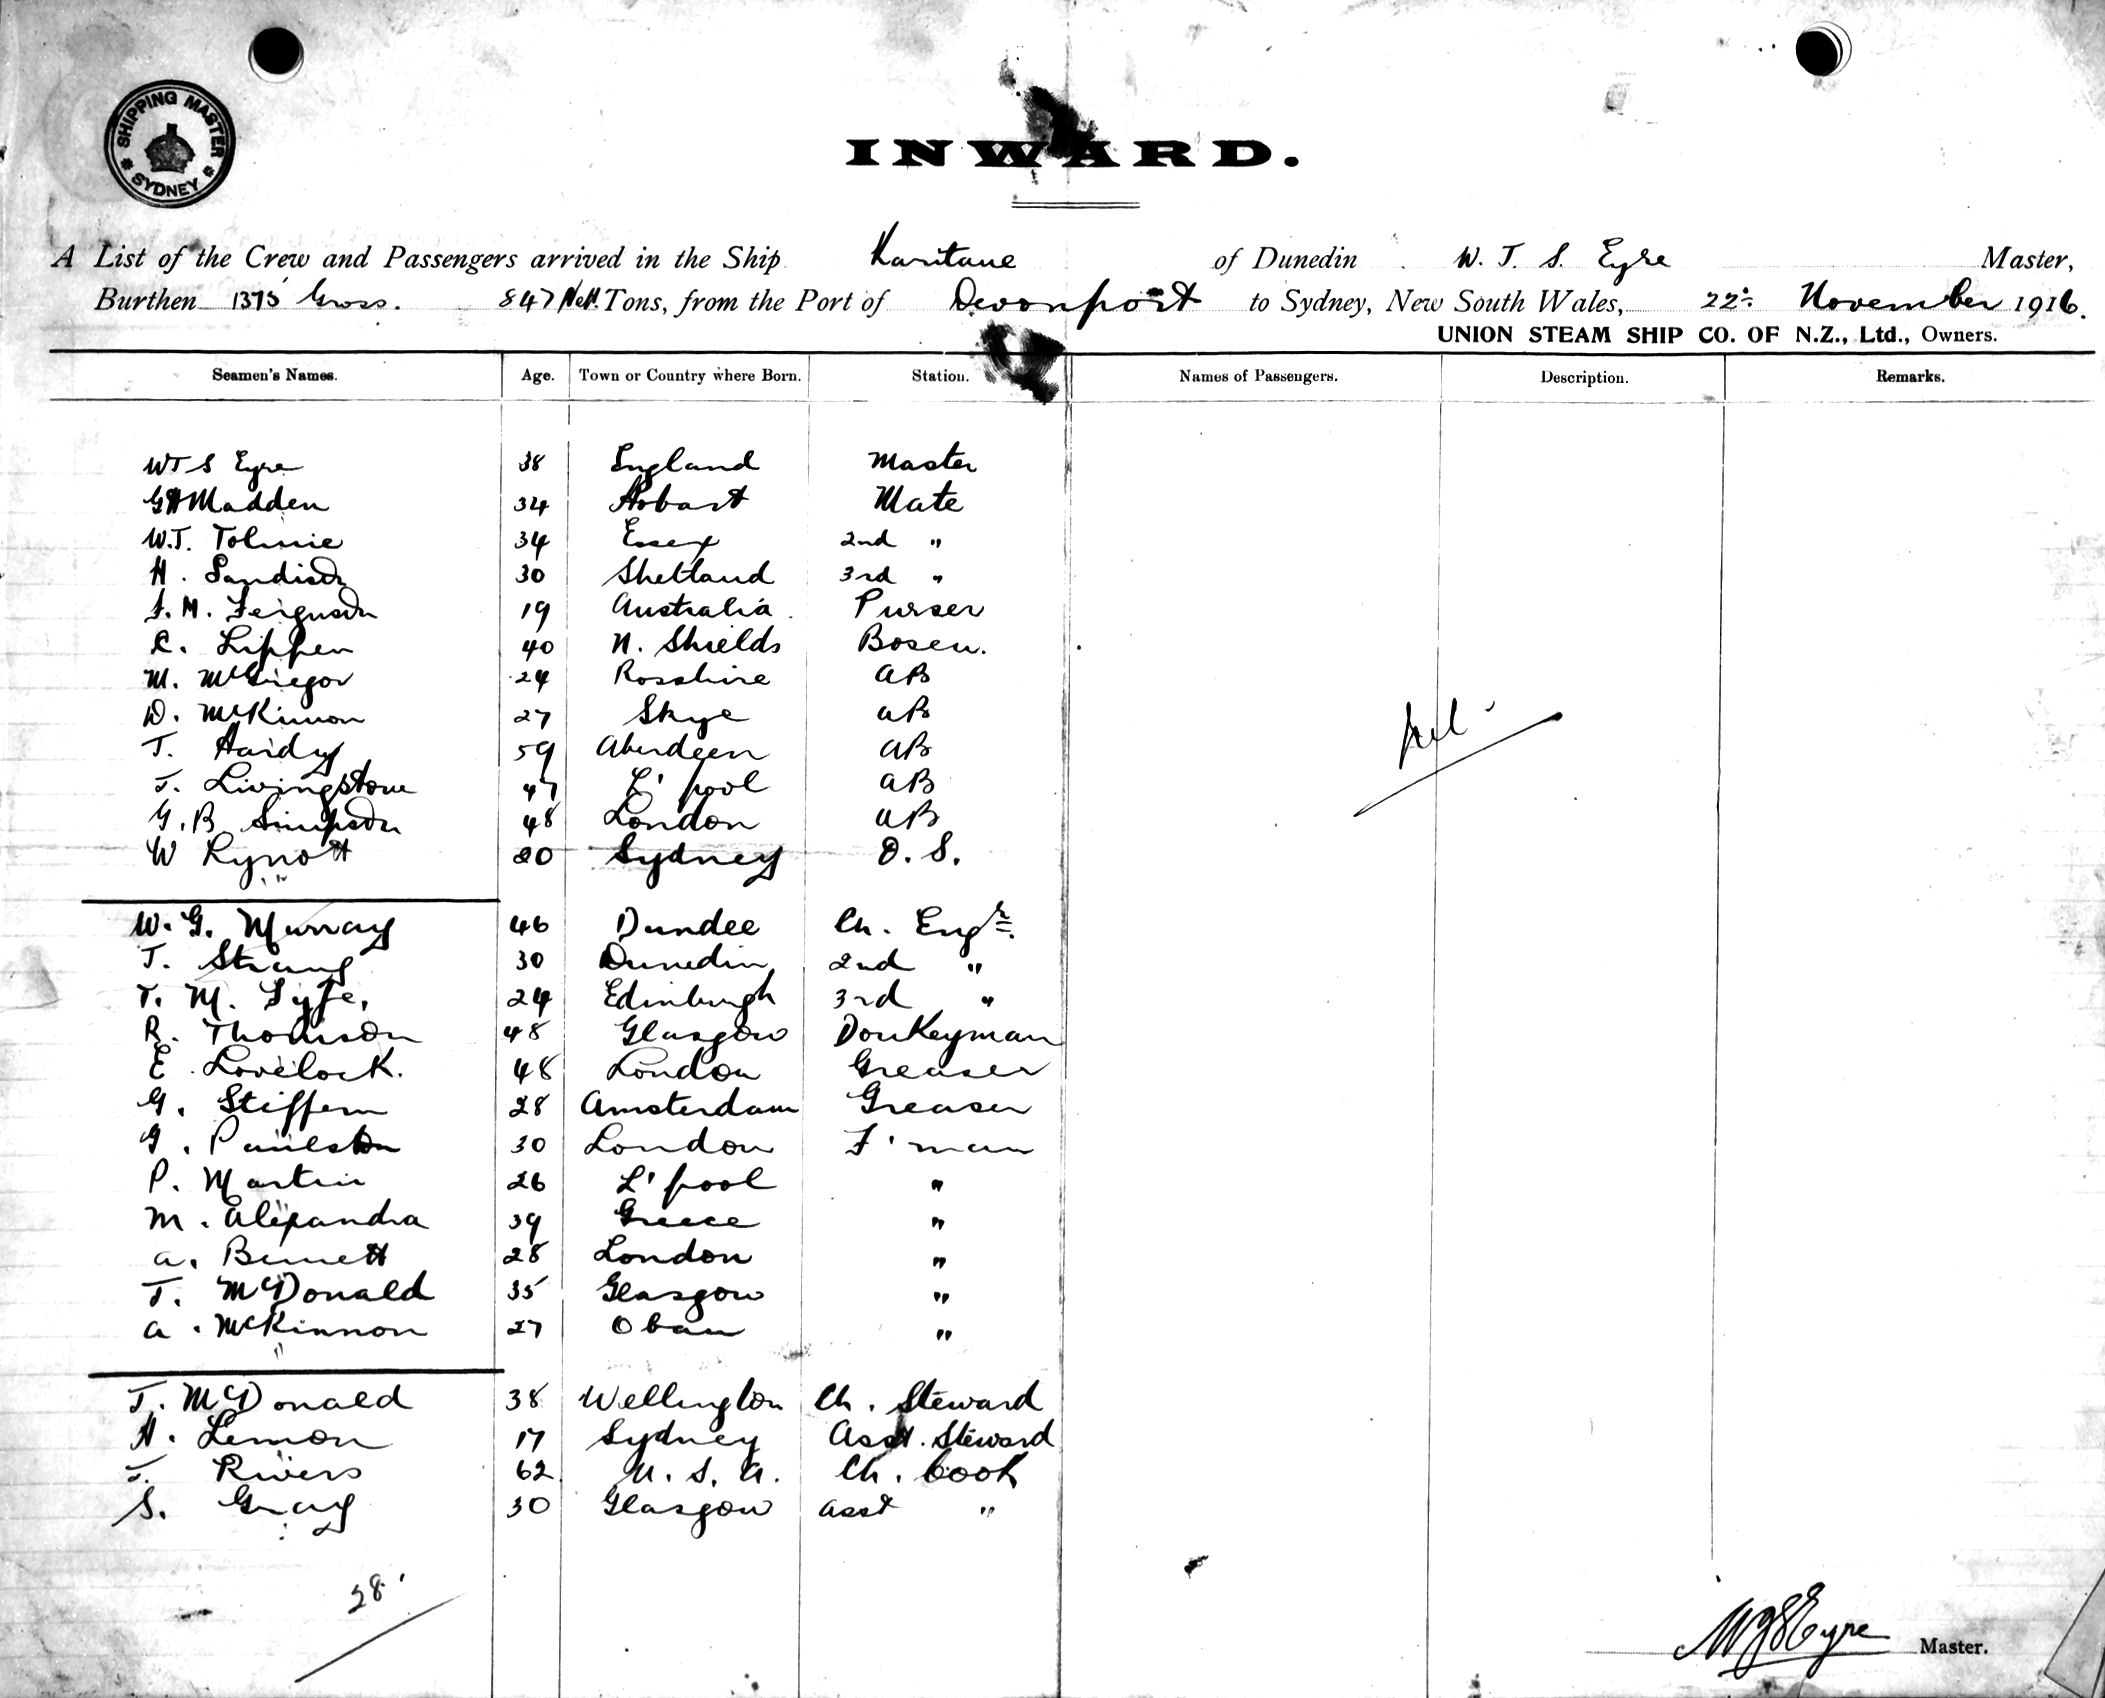 SHIPPING MASTER
SYDNEY
INWARD.
A List of the Crew and Passengers arrived in the Ship Karitane of Dunedin W. T. S. Eyre Master,
Burthen 1375 Gross. 847 Nett. Tons, from the Port of Devonport to Sydney, New South Wales, 22nd November 1916.
UNION STEAM SHIP CO. OF N.Z., Ltd., Owners.
Seamen's Names. Age. Town or Country where Born. Station. Names of Passengers. Description. Remarks.
W T S Eyre 38 England Master
G H Madden 34 Hobart Mate
W.T. Tolmie 34 Essex 2nd "
H. Sandison 30 Shetland 3rd "
J. M. Ferguson 19 Australia Purser
C. Lippen 40 N. Shields Bosen.
M. McGregor 24 Rosshire AB
D. McKinnon 27 Skye AB
T. Hardy 59 Aberdeen AB
T. Livingstone 47 L'pool AB
G. B Simpson 48 London AB
W Lynott 20 Sydney O. S.
Nil
W. G. Murray 46 Dundee Ch. Engr.
T. Strang 30 Dunedin 2nd "
T. M. Fyfe. 24 Edinburgh 3rd "
R. Thomson 48 Glasgow Donkeyman
E. Lovelock. 48 London Greaser
G. Stiffern 28 Amsterdam Greaser
G. Paulston 30 London F'man
P. Martin 26 L'pool "
M. Alexandra 39 Greece "
A. Bennett 28 London "
T. McDonald 35 Glasgow "
A. McKinnon 27 Oban "
T. McDonald 38 Wellington Ch. Steward
H. Lemon 17 Sydney Asst. Steward
T. Rivers 62 U. S. A. Ch. Cook
S. Gray 30 Glasgow Asst "
28
W T S Eyre Master.